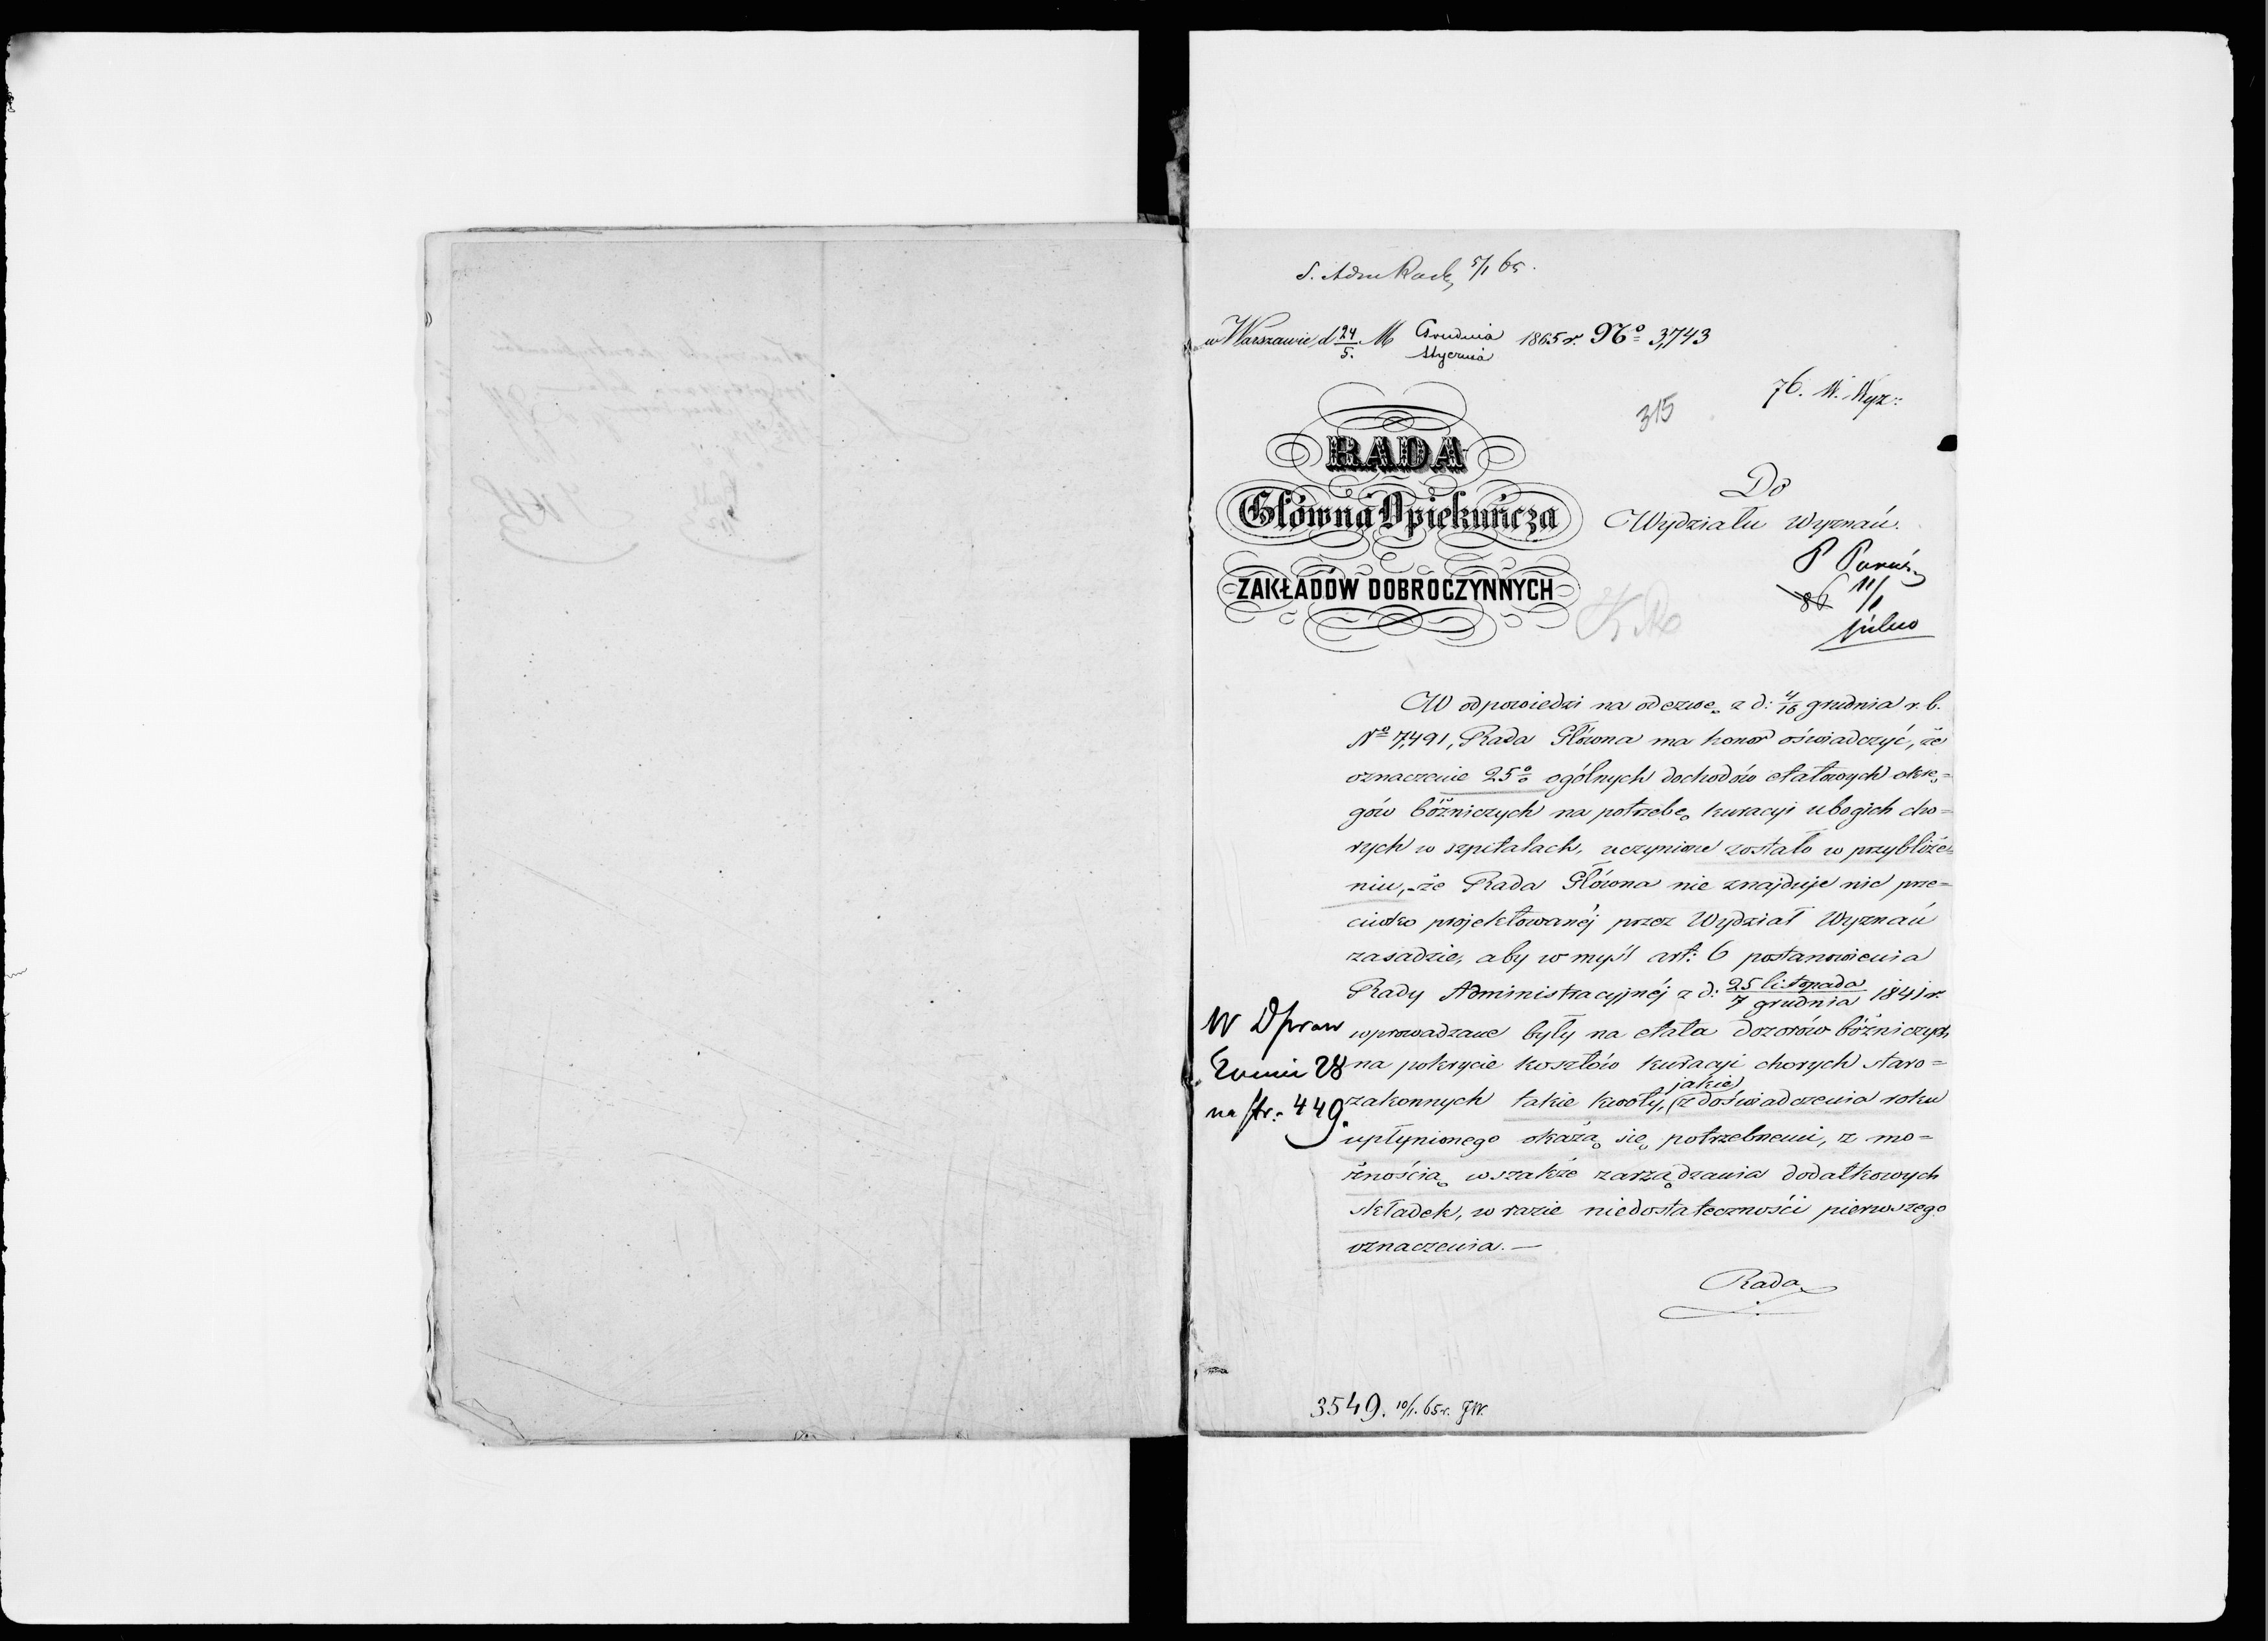 5/1 65.
w Warszawie d 24/5. M Grudnia/Stycznia 1865 r. No 3,743
76. W. Wyz:
315
RADA
Główna Opiekuńcza
ZAKŁADÓW DOBROCZYNNYCH
Do
Wydziału Wyznań.
P
11/1
86
pilno
W odpowiedzi na odezwę z d: 4/16 grudnia r. b.
No 7,491, Rada Główna ma honor oświadczyć, że
oznaczenie 25% ogólnych dochodów etatowych okrę=
gów bóżniczych na potrzebę kuracyi ubogich cho=
rych w szpitalach, uczynione zostało w przybliże=
niu, - że Rada Główna nie znajduje nic prze=
ciwko projektowanéj przez Wydział Wyznań
zasadzie, aby w myśl art: 6 postanowienia
Rady Administracyjnéj z d: 25 listopada/7 grudnia 1841 r.
wprowadzane były na etata dozorów bóżniczych
na pokrycie kosztów kuracyi chorych staro=
zakonnych takie kwoty, jakie z doświadczenia roku
upłynionego okażą się potrzebnemi, z mo=
żnością wszakże zarządzania dodatkowych
składek, w razie niedostateczności pierwszego
oznaczenia. —
W Dpraw
28
na str. 449.
Rada
3549. 10/1. 65 r. JW.